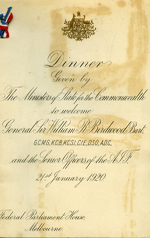 Dinner
Given by
The Ministers of State for the Commonwealth
to welcome
General Sir William R. Birdwood, Bart.
G.C.M.G., K.C.B., K.C.S.I., C.I.E., D.S.O., A.D.C.,
and the Senior Officers of the A.I.F.
21st January 1920
Federal Parliament House,
Melbourne